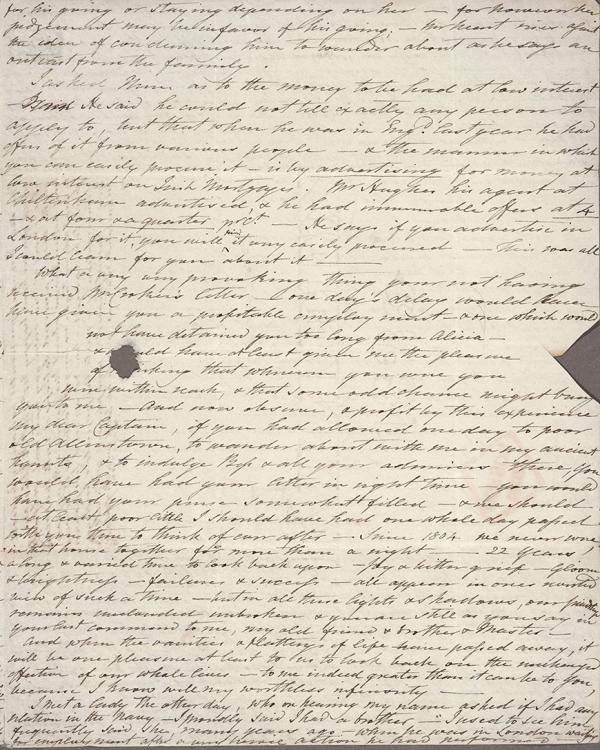 for his going or staying depending on her – for however her
judgement may be in favor of his going, – her heart rises against
the idea of condemning him to wander about as he says an
outcast from the family.
I asked Mun. as to the money to be had at low interest
– He said he could not tell exactly any person to
apply to, but that when he was in Engd. last year he had
offers of it from various people – & the manner in which
you can easily procure it – is by advertising for money at
low interest on Irish Mortgages – Mr Hughes his agent at
Cheltenham advertised, & he had innumerable offers at 4
– & at four & a quarter pr Ct – He says if you advertise in
London for it, you will find it very easily procured – This was all
I could learn for you about it –
What a very very provoking thing your not having
received letter – one day's delay would have
have given you a profitable employment – & one which would
not have detained you too long from Alicia –
& would have at least given me the pleasure
of thinking that whenever you were you
were within reach, & that some odd chance might bring
you to me – And now observe, & profit by this experience
my dear Captain, if you had allowed one day to poor
old Allenstown, to wander about with me in my ancient
haunts, & to indulge & all your admirers there, you
would have had your letter in right time – you would
have had your purse somewhat filled – & we should
– at least poor little I should have had one whole day passed
with you time to think of ever after – Since 1804 we never were
in that house together for more than a night – 22 Years!
a long & varied time to look back upon – Joy & bitter grief – Gloom
& brightness – failures & success – all appear in one's
view of such a time – but in all these lights & shadows, our friendship
remains unclouded unbroken & you are still as you say in
your last command to me, my old friend & brother & Master –
And when the vanities & flatterings of life have passed away, it
will be one pleasure at least to us to look back on the unchanged
affection of our whole lives – to me indeed greater than it can be to you,
because I know well my worthless inferiority –
I met a lady the other day, who on hearing my name asked if I had any
relation in the Navy – I proudly said I had a brother – "I used to see him
frequently said she, many years ago – when he was in London waiting
for employment after a very heroic action he had performed